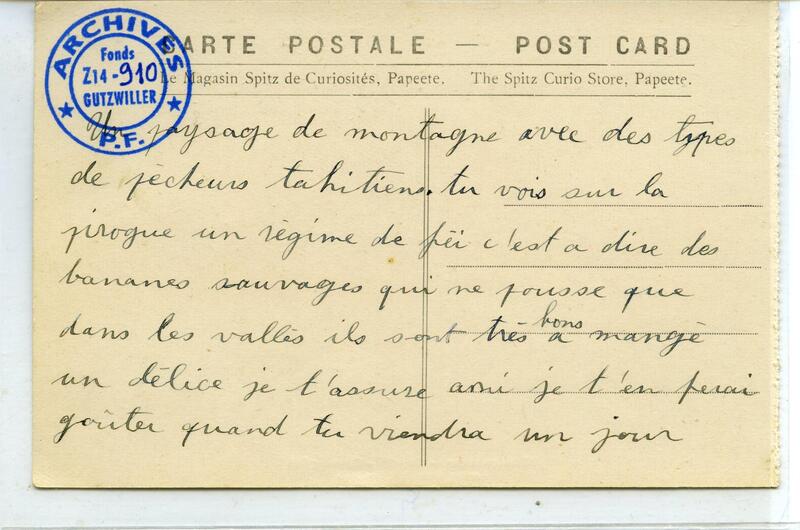 CARTE POSTALE — POST CARD
Le Magasin Spitz de Curiosités, Papeete. The Spitz Curio Store, Papeete.
ARCHIVES
Fonds
Z14-910
GUTZWILLER
P.F.
Un paysage de montagne avec des types
de pècheurs tahitiens. tu vois sur la
pirogue un régime de féi c'est a dire des
bananes sauvages qui ne pousse que
dans les vallès ils sont très bons a mangè
un délice je t'assure ami je t'en ferai
goûter quand tu viendra un jour